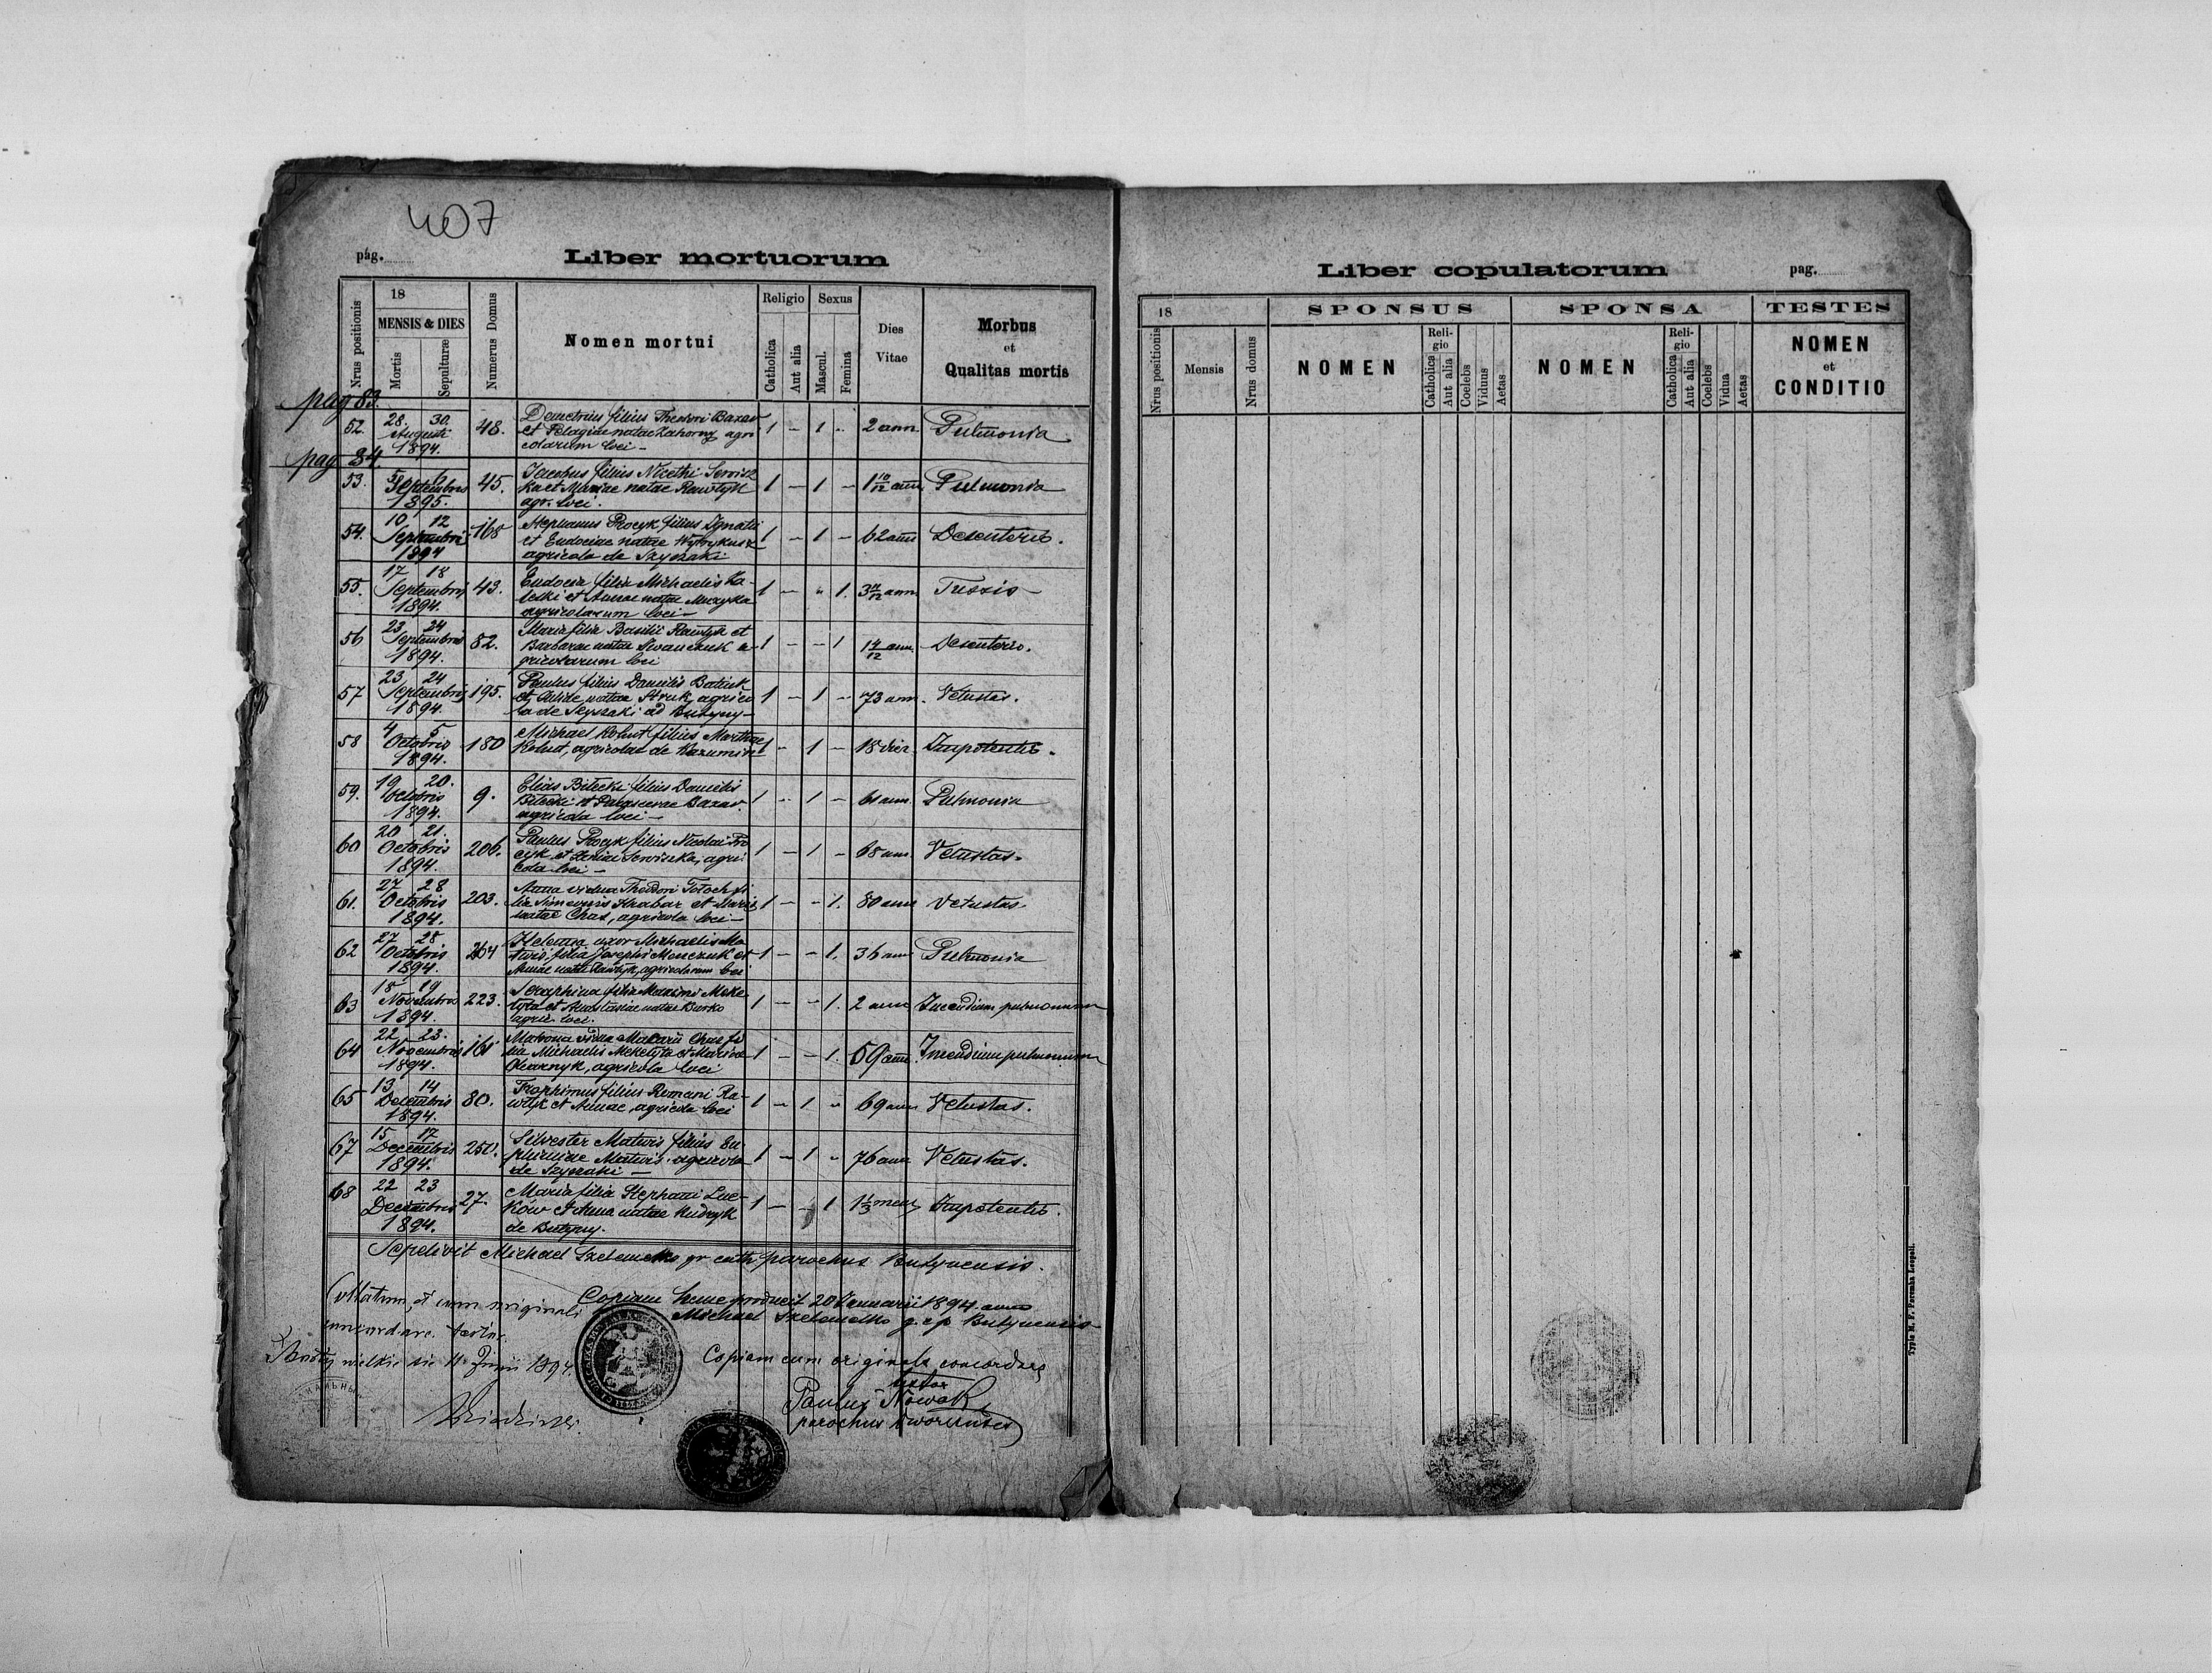 407
pag.
Liber mortuorum
Nrus positionis
18
MENSIS & DIES
Mortis
Sepulturæ
Numerus Domus
Nomen mortui
Religio
Catholica
Aut alia
Sexus
Mascul.
Femina
Dies
Vitae
Morbus
et
Qualitas mortis
pag 83.
52. 28. 30. Augusti 1894. 48. Demetrius filius Theodori Bazar
et Pelagiae natae Zahorny agri
colarum loci – 1 – 1 – 2 ann. Pulmonia
pag 84.
53. 5 6 Septembris 1895. 45. Jacobus filius Nicethi Serwisz
ka et Mariae natae Rawlyk
agr. loci. 1 – 1 – 1 10/12 ann Pulmonia
54. 10 12 Septembris 1894 168 Stephanus Procyk filius Ignatii
et Eudociae natae
agricola de Szyszaki 1 – 1 – 62 ann Desenteris.
55. 17 18 Septembris 1894. 43. Eudocia filia Michaelis Ka-
et Annae natae Muzyka
agricolarum loci – 1 – 1. ann. Tussis –
56 23 24 Septembris 1894. 82. Maria filia Basilii Rawlyk et
Barbarae natae Iwanczuk a-
gricolarum loci 1 – – 1 ann. Desenteris.
57 23 24 Septembris 1894. 195. Paulus filius Danielis Batiuk
et natae Struk, agrico
la de Szyszaki ad Butyny – 1 – 1 – 73 ann. Vetustas.
58 4 5 Octobris 1894. 180 Michael Kohut filius Marthae
Kohut, agricolae de 1 – 1 – 18 dier. Impotentis.
59. 19 20. Octobris 1894. 9. Elias Bilecki filius Danielis
Bilecki et Parasceviae Bazar
agricola loci – 1 – 1 – 61 ann. Pulmonia
60 20 21. Octobris 1894. 206. Paulus Procyk filius Nicolai Pro
cyk et Xeniae Serwiszka, agri
cola loci – 1 – 1 – 68 ann. Vetustas.
61. 27 28 Octobris 1894. 203. Anna vidua Theodori Totoch fi
lia Simeonis Hrabar et Maria
natae Chas, agricola loci – 1 – – 1. 80 ann Vetustas
62 27 28 Octobris 1894. 264 Helena uxor Michaelis Ma
twis, filia Josephi et
Annae natae Rawlyk, agricolarum loci 1 – – 1. 36 ann Pulmonia
63 18 19 Novembris 1894. 223. Seraphina filia Maximi Meke
tyta et Anastasiae natae Burko
agric. loci. 1 – – 1. 2 ann Incendium pulmonum
64 22 23. Novembris 1894. 161 Matrona vidua Macarii Chas fi
lia Michaelis Meketyta et Mariae
Oharnyk, agricola loci 1 – – 1. 59 ann. Incendium pulmonum
65 13 14 Decembris 1894. 80. Trophimus filius Romani Ra-
wlyk et Annae, agricola loci 1 – 1 – 69 ann Vetustas.
67 15 17 Decembris 1894. 250. Silvester Matwis filius Eu
phimiae Matwis, agricola
de Szyszaki – 1 – 1 – 76 ann Vetustas.
68 22 23 Decembris 1894. 27. Maria filia Stephani Luc-
ków et Anna natae Kudryk
de Butyny. 1 – – 1 1 1/3 mens Impotentis.
Sepelivit Michael Szelemetko gr cath parochus Butynensis.
Copiam hanc producit 20 Januarii 1894. anno
Michael Szelemetko g. c. p. Butynensis
Collatum, et cum originali
concordare testor.
Mosty wielkie die 11 Junii 1894.
Copiam cum originale concordare
testor
Paulus Nowak
parochus Dworcensis
Liber copulatorum
pag.
18
Nrus positionis
Mensis
Nrus domus
SPONSUS
NOMEN
Reli-
gio
Catholica
Aut alia
Coelebs
Viduus
Aetas
SPONSA
NOMEN
Reli-
gio
Catholica
Aut alia
Coelebs
Vidua
Aetas
TESTES
NOMEN
et
CONDITIO
Typis M. F. Poremba Leopoli.